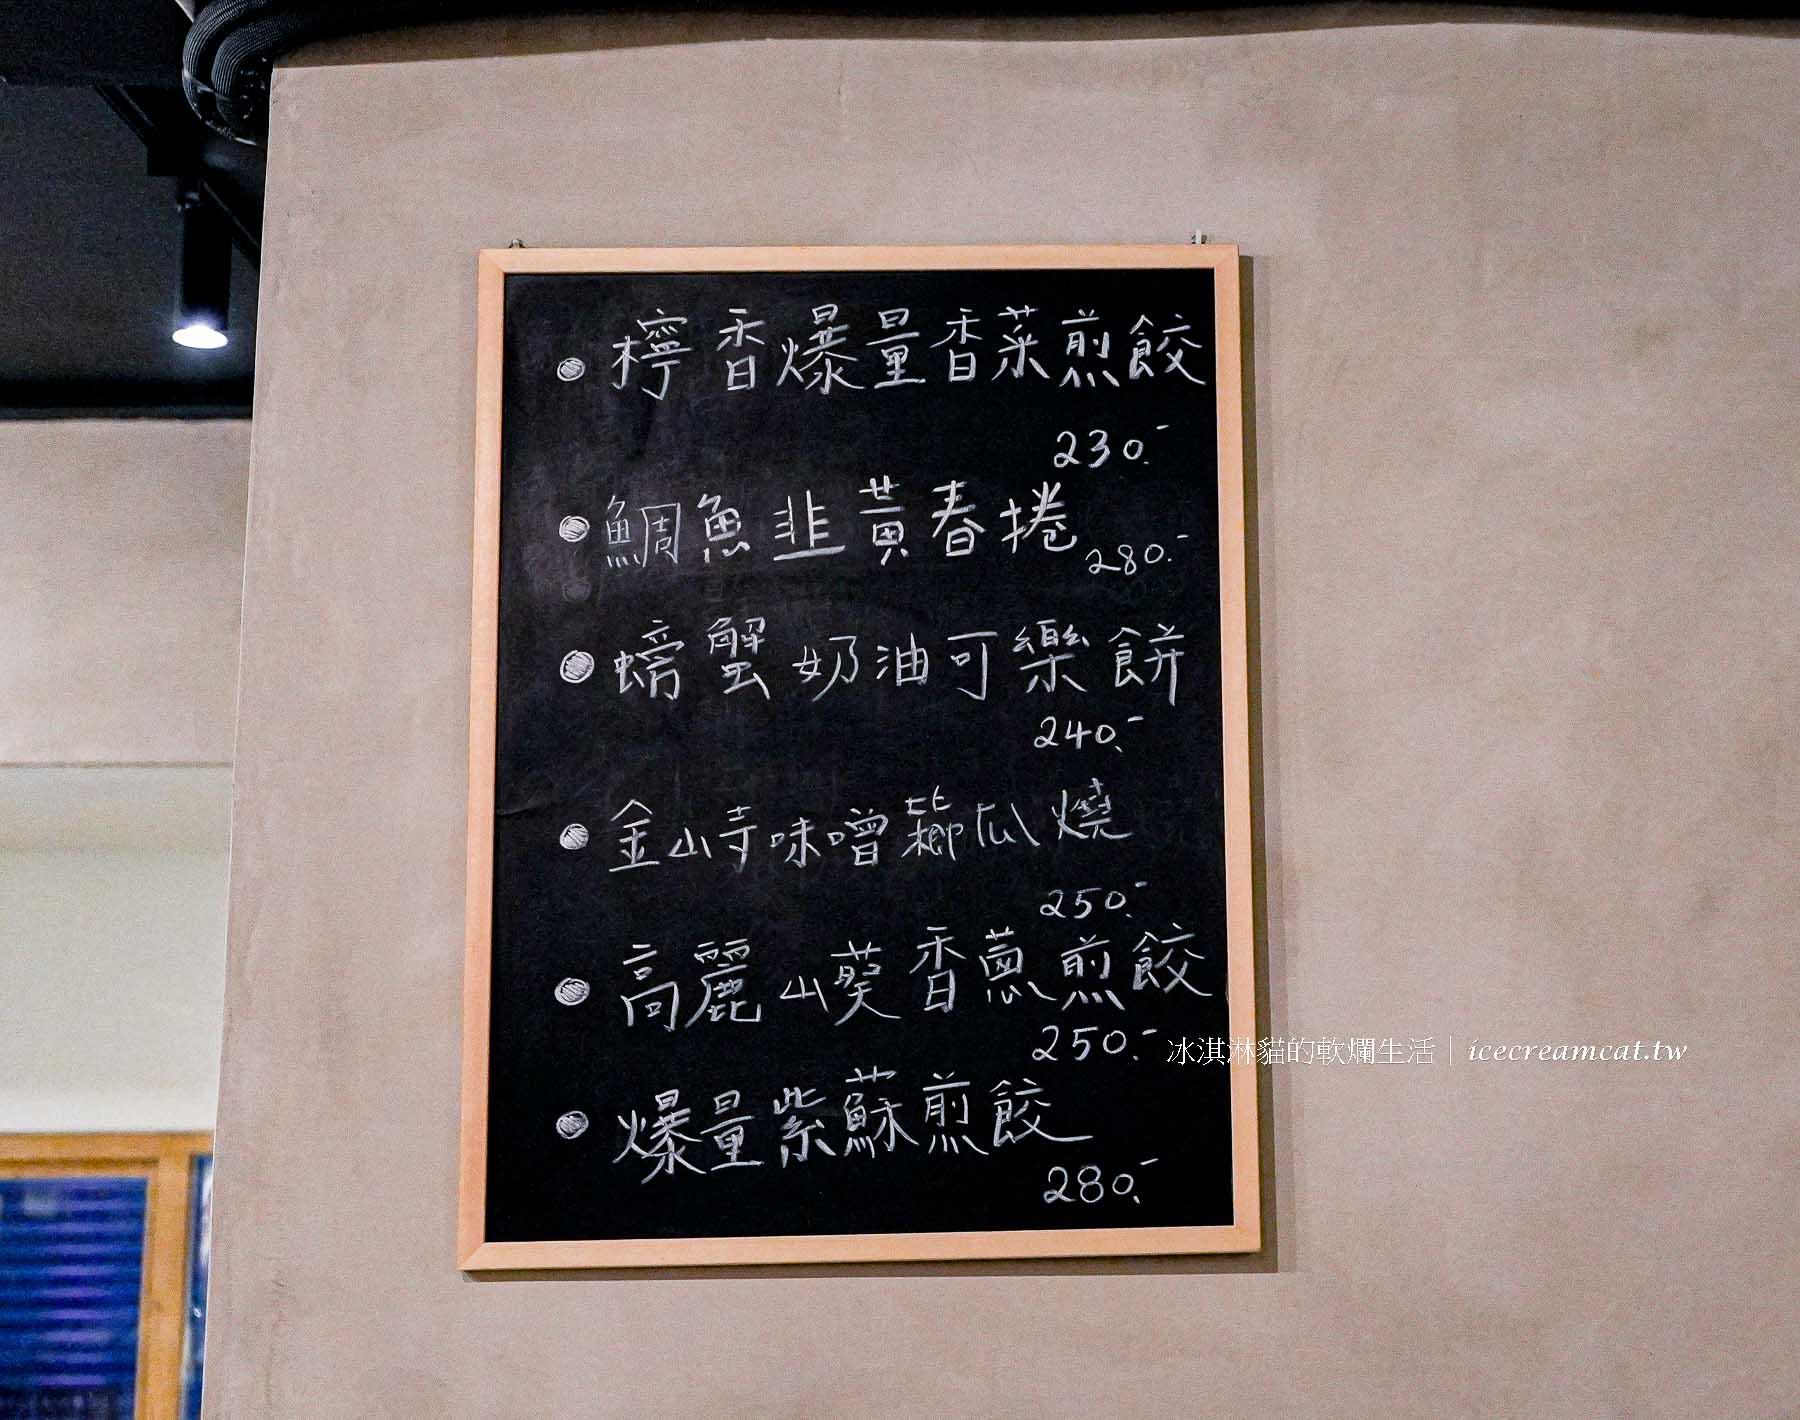 檸香爆量香菜煎餃
230.-
鯛魚韭黃春捲
280.-
螃蟹奶油可樂餅
240.-
金山寺味噌櫛瓜燒
250.-
高麗山葵香蔥煎餃
250.-
冰淇淋貓的軟爛生活｜icecreamcat.tw
爆量紫蘇煎餃
280.-